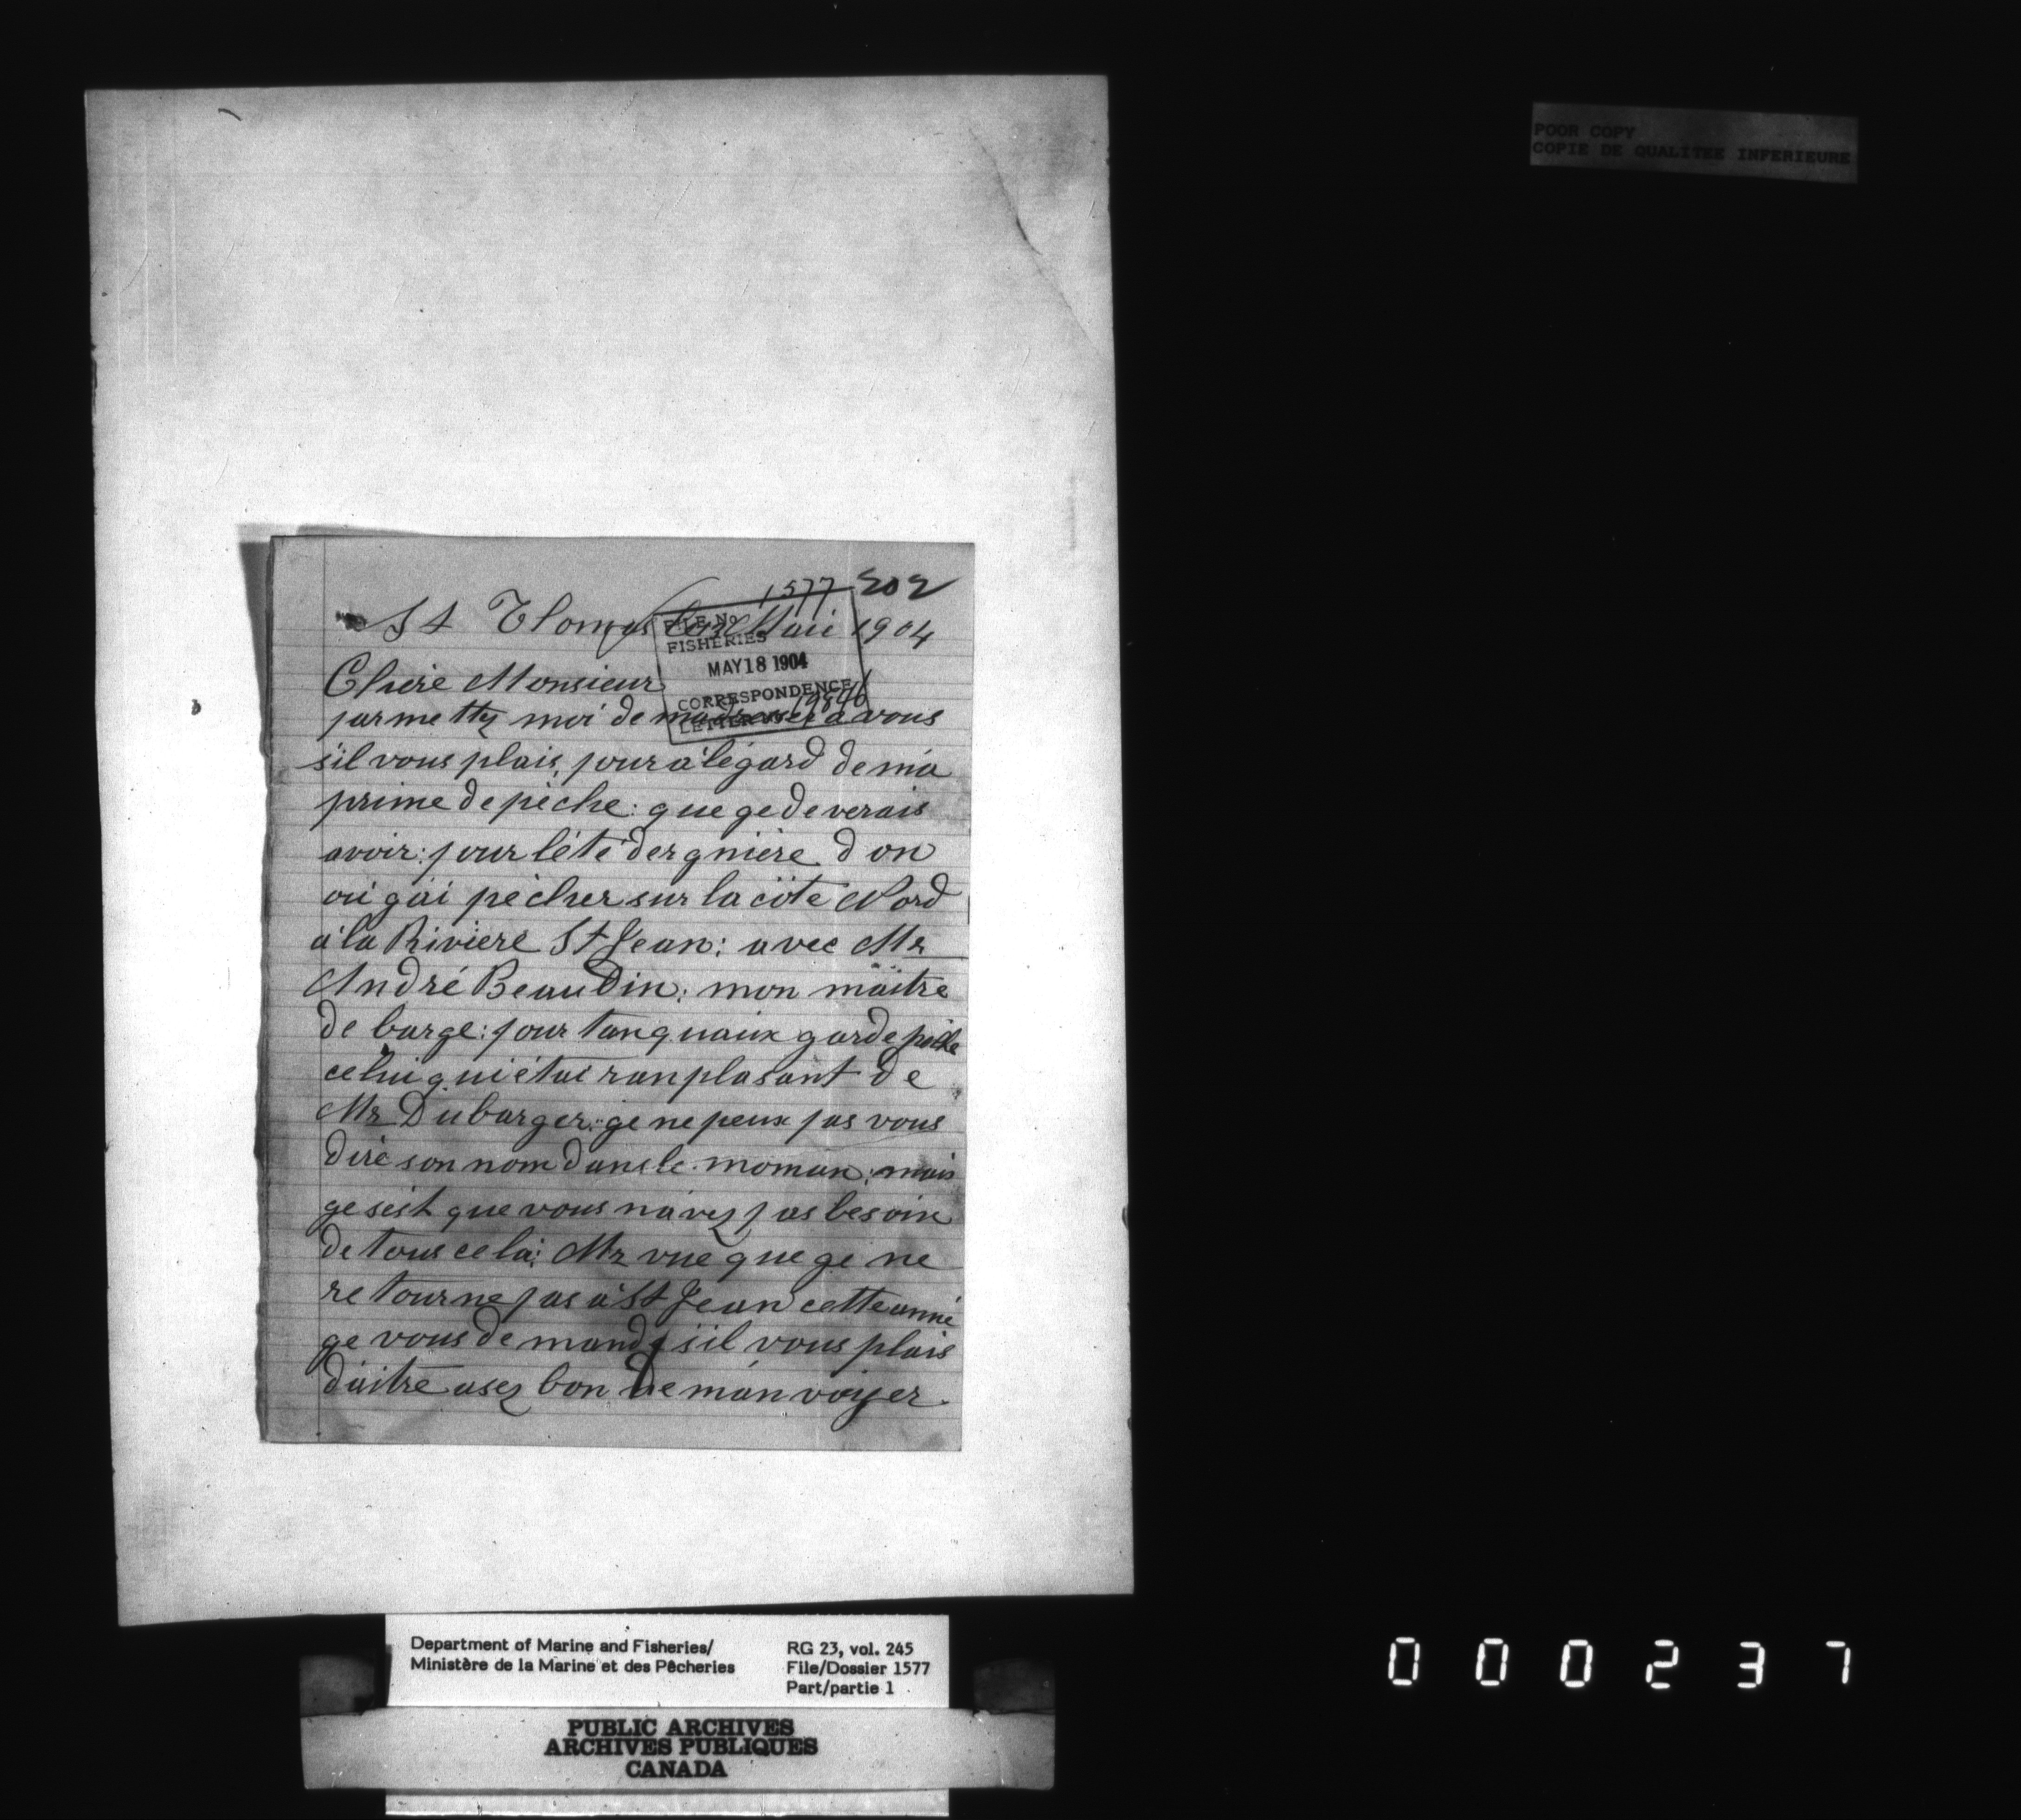 POOR COPY
COPIE DE QUALITEE INFERIEURE
1577 202
St Thomas Mai 1904
FILE No
FISHERIES
MAY 18 1904
CORRESPONDENCE
LETTER No
Chere Monsieur
parmettez moi de madresser a vous
s'il vous plais, pour a l'égard de ma
prime de pêche: que ge deverais
avoir: pour lété dergnière don
où g'ai pêcher sur la côte Nord
a la Riviere St Jean: avec Mr
André Beaudin: mon maître
de barge: pour tanquaux garde pêche
celui qui étai ranplasant de
Mr Dubarger: ge ne peux pas vous
dire son nom dans le moman: mais
ge seit que vous navez pas besoin
de tous cela: Mr vue que ge ne
retourne pas a St Jean cette anné
ge vous demande s'il vous plais
d'aitre asez bon de m'anvoyer
Department of Marine and Fisheries/
Ministère de la Marine et des Pêcheries
RG 23, vol. 245
File/Dossier 1577
Part/partie 1
PUBLIC ARCHIVES
ARCHIVES PUBLIQUES
CANADA
000237